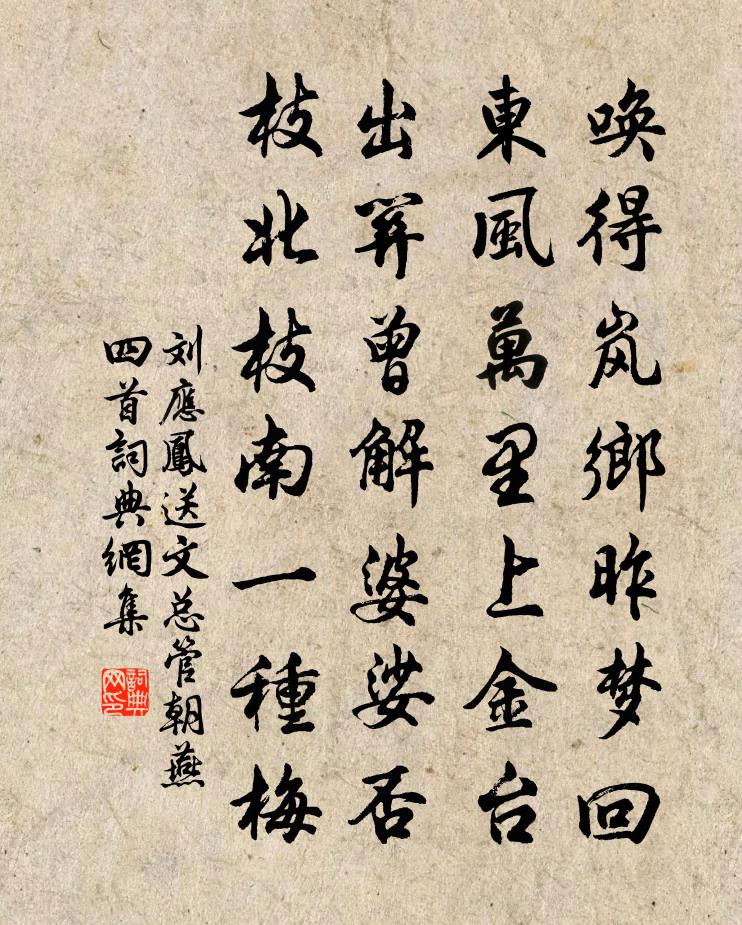 唤得岚鄉昨梦回
東風萬里上金台
出羿曾解婆娑否
枝北枝南一種梅
刘應鳳送文总管朝燕
四首詞典網集
詞典
网印